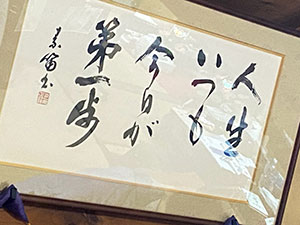 人生
いつも
今日が
第一歩